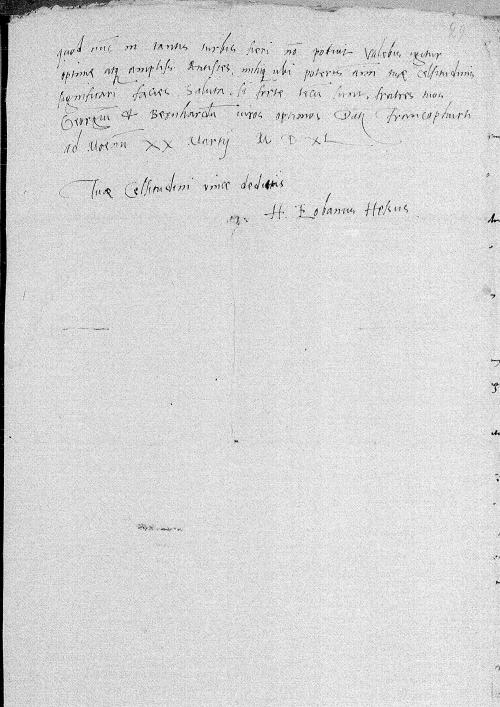 quod nūc in tantis turbis fieri nō potuit Valebis igitur
optime atq; ampliss. Antistes, mihiq; ubi poteris tuæ Celsitudinis
significari facies. Saluta, si forte tecū sunt, fratres tuos
Georgiū & Bernhardū viros optimos Datę Francophurti
ad Moenū XX Martij M D XL
Tuæ Celsitudini unice deditus
H. Eobanus Hessus.